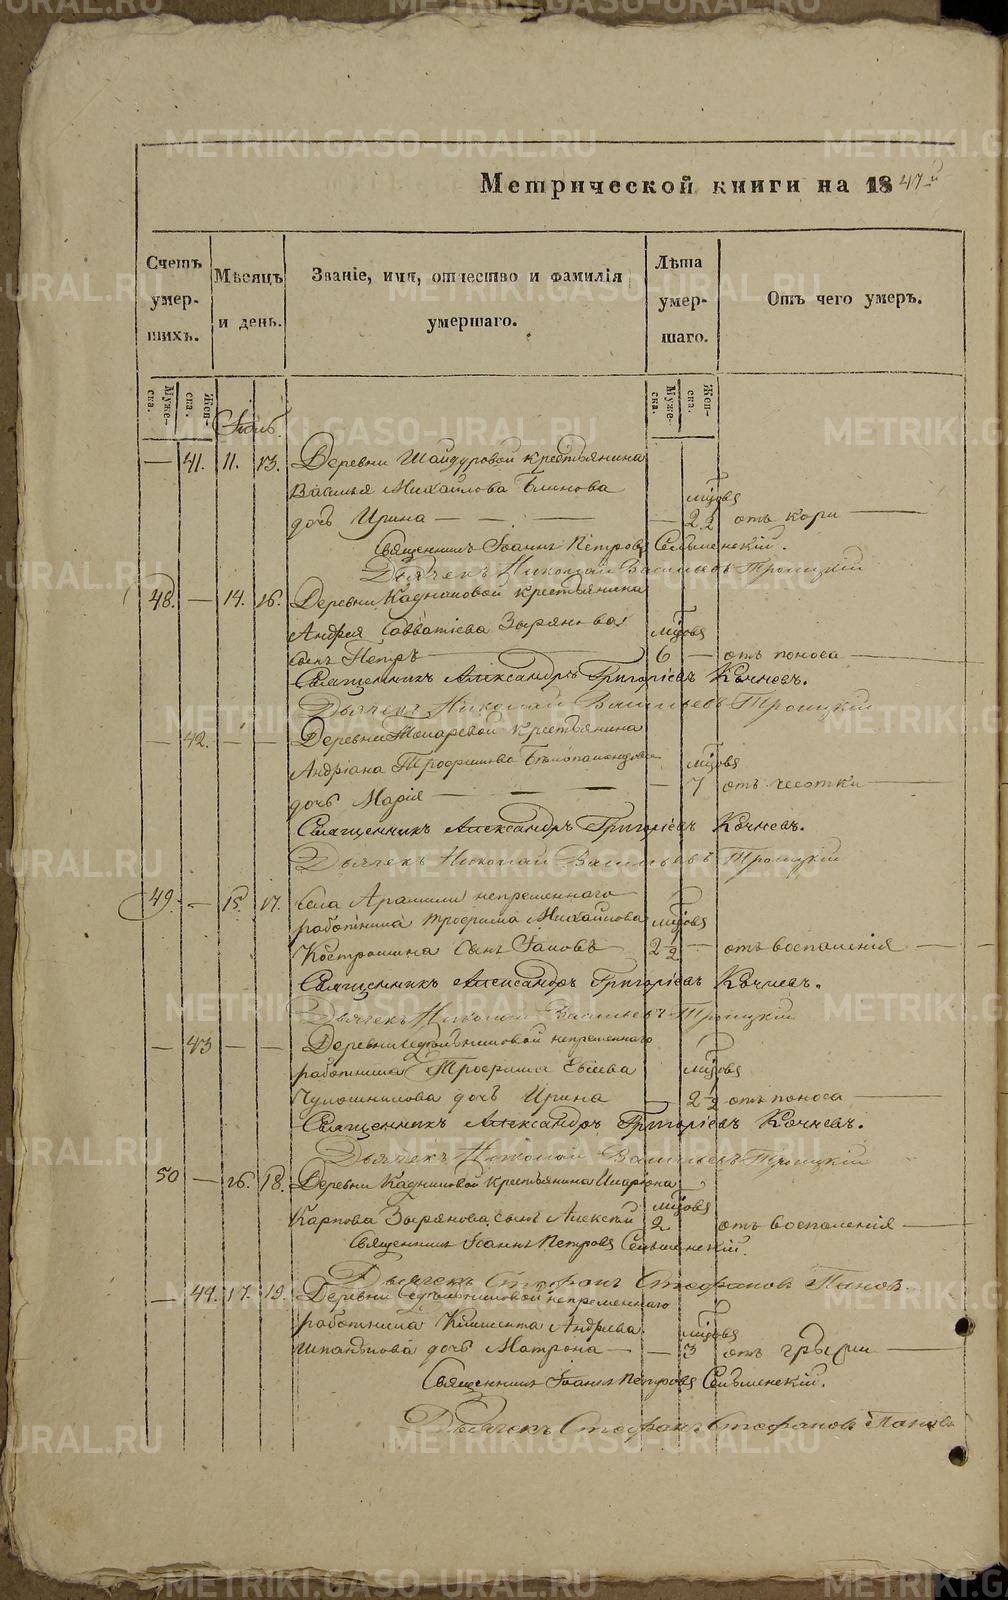 Метрической книги на 1847
Счетъ умер-шихъ.
Мѣсяцъ и день.
Званіе, имя, отчество и фамилія умершаго.
Лѣта умер-шаго.
Отъ чего умеръ.
Муже-ска.
Жен-ска.
Муже-ска.
Жен-ска.
— 41. 11. 13. Деревни Шайдуровой крестьянина
Василья Михайлова Блинова
дочь Ирина — 2 1/2 отъ кори
Священникъ Іоаннъ Петровъ Сельменскій.
Дьячекъ Николай Васильевъ Троицкій
48. — 14. 16. Деревни Кадниковой крестьянина
Андрея Савватіева Зырянова
сынъ Петръ — 6 — отъ поноса
Священникъ Александръ Григоріевъ Кочневъ.
Дьячекъ Николай Васильевъ Троицкій
— 42. — — Деревни крестьянина
Андріана Трофимова
дочь Марія — 7 отъ чесотки
Священникъ Александръ Григоріевъ Кочневъ.
Дьячекъ Николай Васильевъ Троицкій
49. — 15. 17. Села Арамили непременнаго
работника Трофима Михайлова
Костромина сынъ Іаковъ 2 1/2 — отъ воспаленія
Священникъ Александръ Григоріевъ Кочневъ.
Дьячекъ Николай Васильевъ Троицкій
— 43 — — Деревни Седельниковой непременнаго
работника Трофима
дочь Ирина — 2 1/2 отъ поноса
Священникъ Александръ Григоріевъ Кочневъ.
Дьячекъ Николай Васильевъ Троицкій
50 — 16. 18. Деревни Кадниковой крестьянина Иларіона
Карпова Зырянова сынъ Алексѣй 2 отъ воспаленія
Священникъ Іоаннъ Петровъ Сельменскій.
Дьячекъ Стефанъ Стефановъ Пановъ.
— 44. 17. 19. Деревни Седельниковой непременнаго
работника Климента Андреева
дочь Матрона — — 3 отъ грыжи
Священникъ Іоаннъ Петровъ Сельменскій.
Дьячекъ Стефанъ Стефановъ Пановъ
METRIKI.GASO-URAL.RU